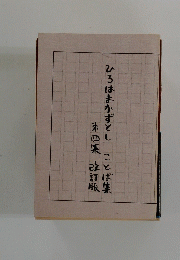 ひろはまかずとし ことば集
第四集 改訂版